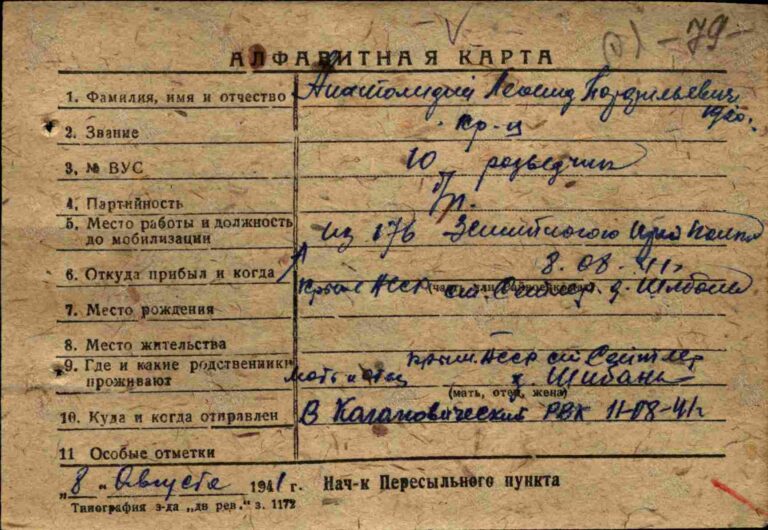 01-79-
АЛФАВИТНАЯ КАРТА
1. Фамилия, имя и отчество Анатолидий Леонид
1920г.
2. Звание кр-ц
3. № ВУС 10 розведчик
4. Партийность
5. Место работы и должность
до мобилизации из 176 Зенитного Арт Полка
6. Откуда прибыл и когда 8.08.41г
Крым АССР ст. Сейтлер д. Шибань
7. Место рождения
8. Место жительства
9. Где и какие родственники Крым АССР ст Сейтлер
проживают Мать и отец д. Шибань
(мать, отец, жена)
10. Куда и когда отправлен В Кагановический РВК 11-08-41г
11 Особые отметки
„8 “ Августа 1941г. Нач-к Пересыльного пункта
Типография з-да „дв рев.“ з. 1172